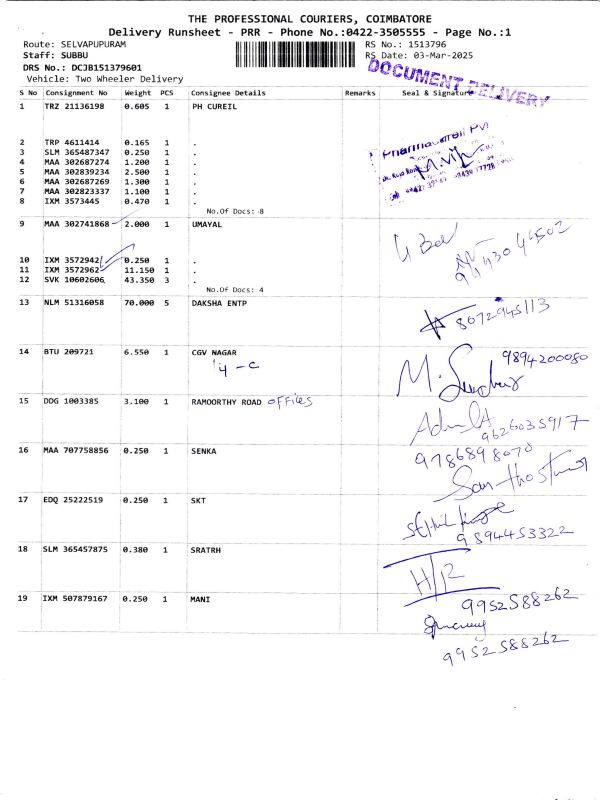 THE PROFESSIONAL COURIERS, COIMBATORE
Delivery Runsheet - PRR - Phone No.:0422-3505555 - Page No.:1
Route: SELVAPUPURAM RS No.: 1513796
Staff: SUBBU RS Date: 03-Mar-2025
DRS No.: DCJB151379601
DOCUMENT DELIVERY
Vehicle: Two Wheeler Delivery
S No Consignment No Weight PCS Consignee Details Remarks Seal & Signature
1 TRZ 21136198 0.605 1 PH CUREIL
2 TRP 4611414 0.165 1 .
3 SLM 365487347 0.250 1 .
4 MAA 302687274 1.200 1 .
5 MAA 302839234 2.500 1 .
6 MAA 302687269 1.300 1 .
7 MAA 302823337 1.100 1 .
8 IXM 3573445 0.470 1 .
No.Of Docs: 8
9 MAA 302741868 2.000 1 UMAYAL
10 IXM 3572942 0.250 1 .
11 IXM 3572962 11.150 1 .
12 SVK 10602606 43.350 3 .
No.Of Docs: 4
13 NLM 51316058 70.000 5 DAKSHA ENTP
8072945113
14 BTU 209721 6.550 1 CGV NAGAR
9894200080
4 - C
15 DDG 1003385 3.100 1 RAMOORTHY ROAD OFFICES
9626035917
16 MAA 707758856 0.250 1 SENKA
9786898070
17 EDQ 25222519 0.250 1 SKT
9894453322
18 SLM 365457875 0.380 1 SRATRH
H/R
9952588262
19 IXM 507879167 0.250 1 MANI
9952588262